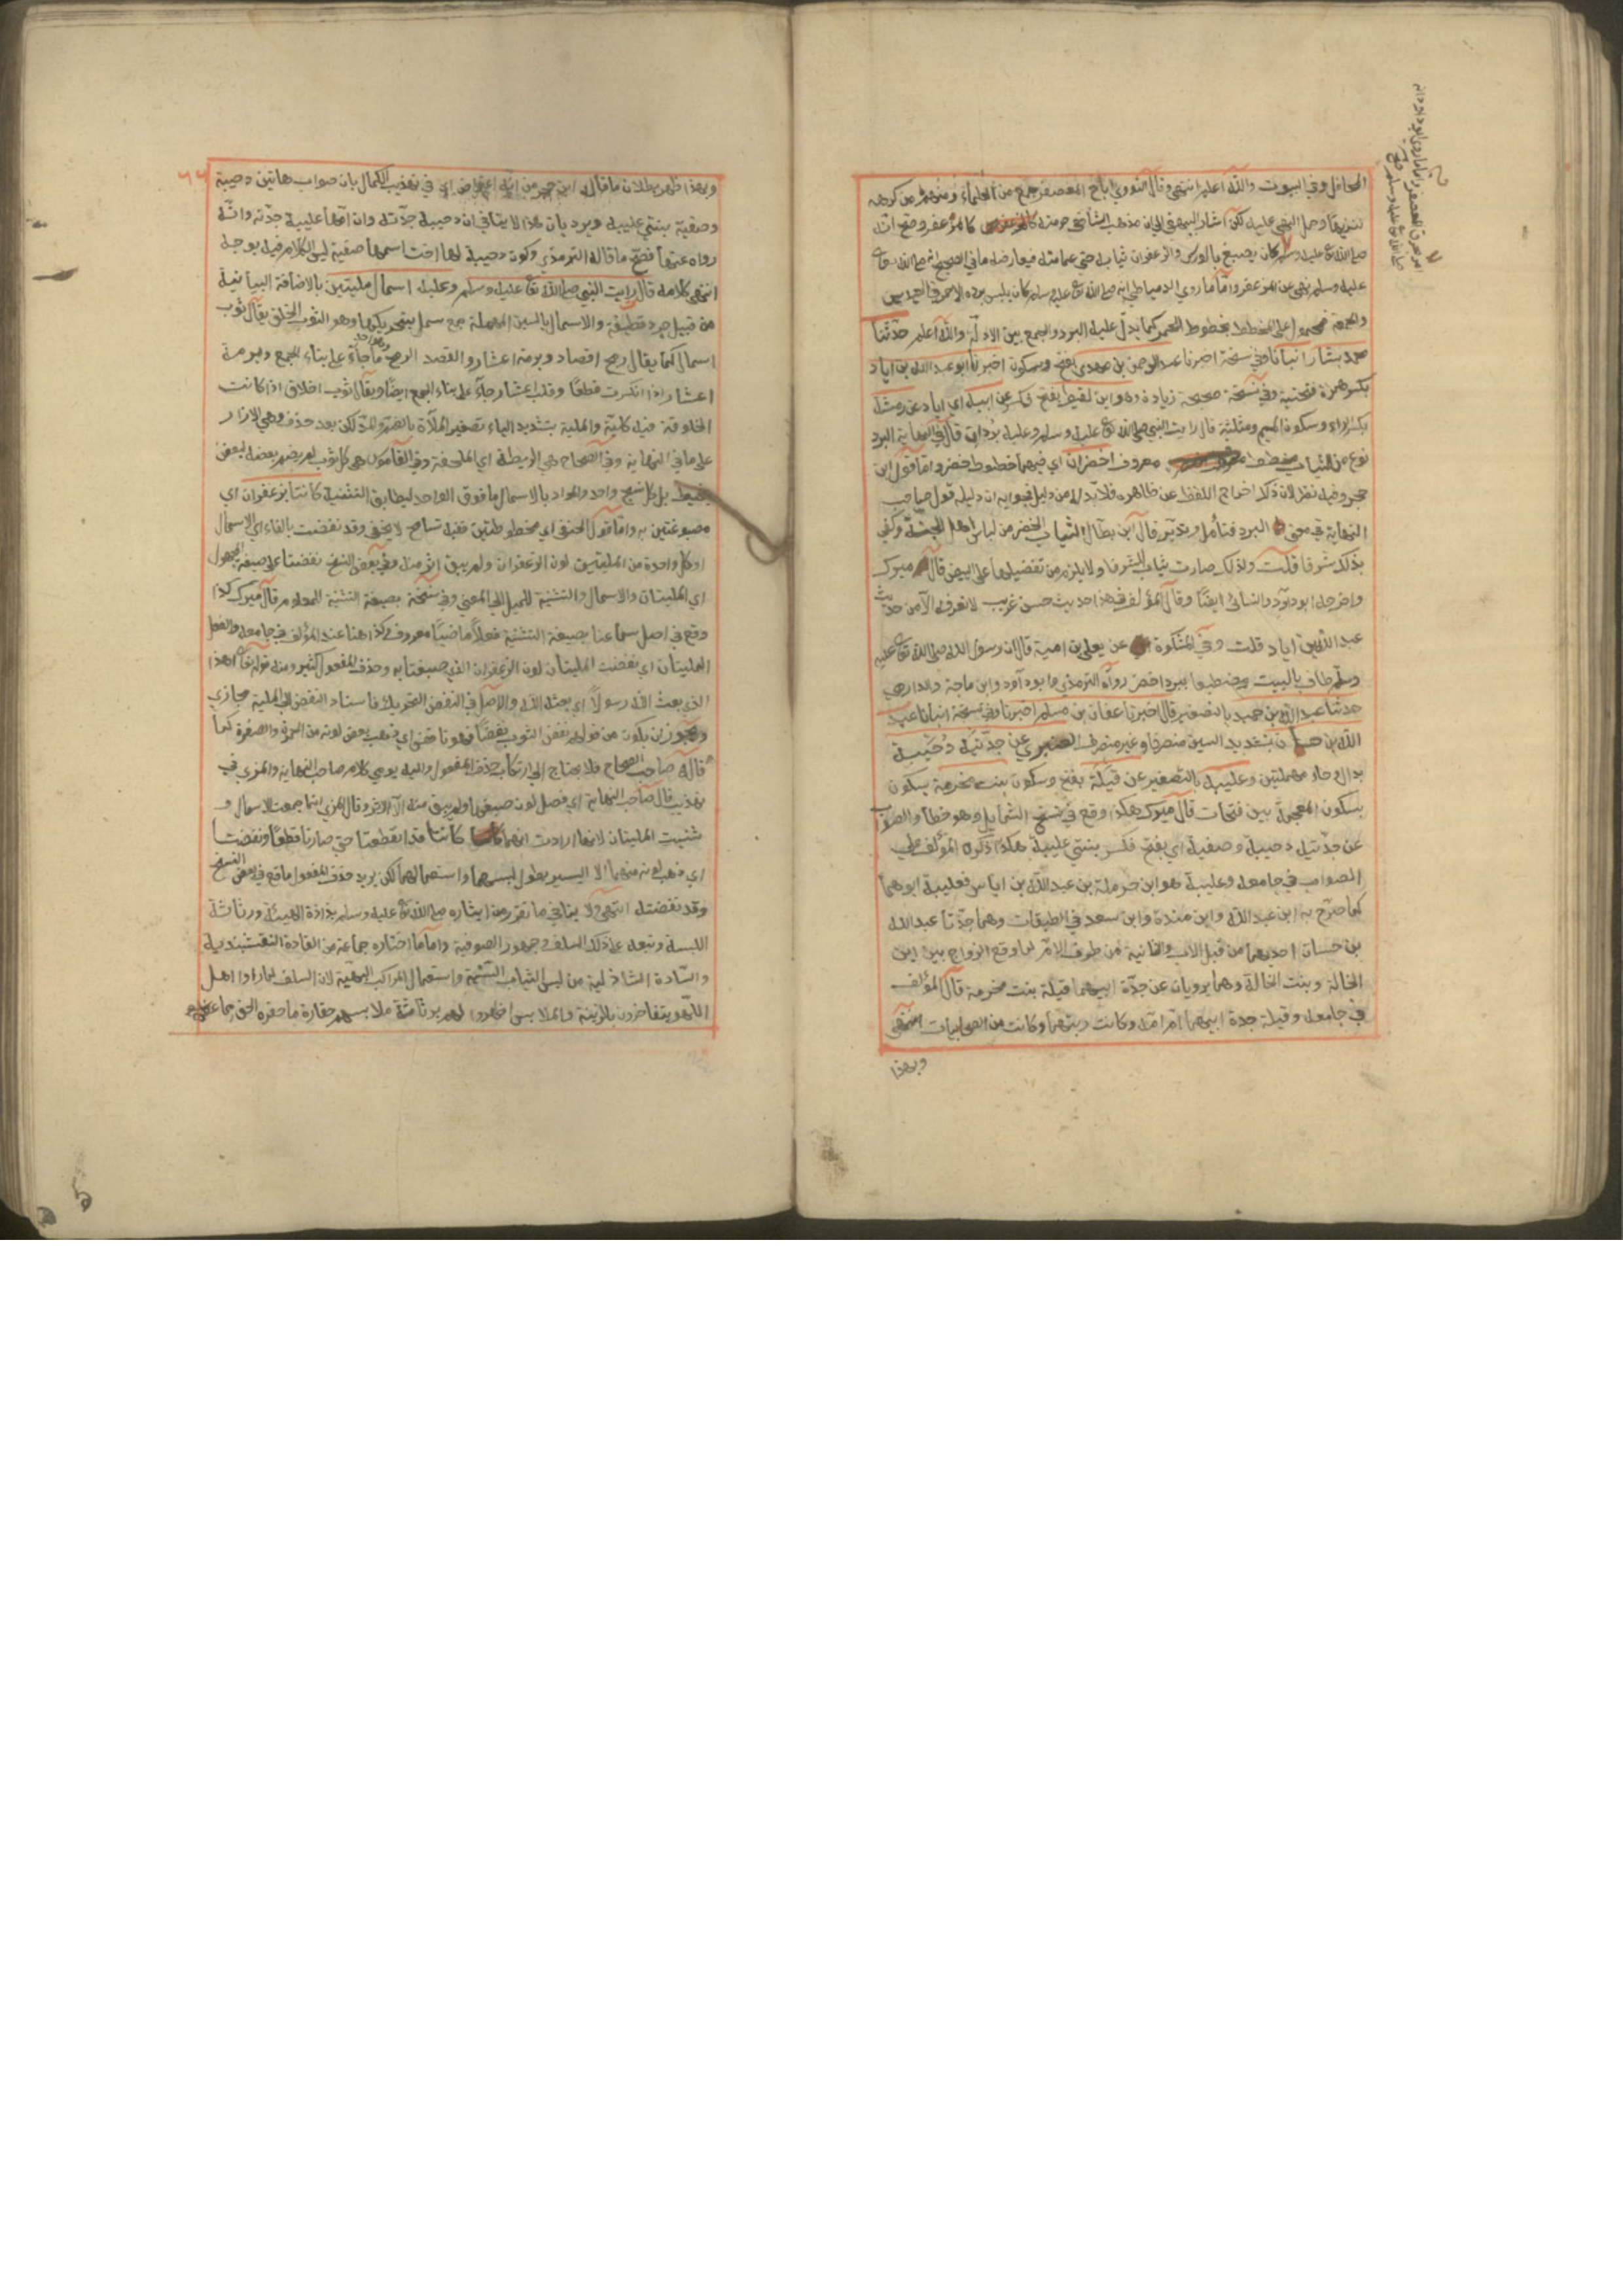 المحافل وفي البيوت والله اعلم انتهى وقال النووي اباح المعصفر جمع من العلماء ومنهم من كرهه
تنزيها وحمل النهي عليه لكن اشار البيهقي الى ان مذهب الشافعي حرمته كالمزعفر وصح انه
صلى الله تع عليه وسلم كان يصبغ بالورس والزعفران ثيابه حتى عمامته فيعارضه ما في الصحيح انه صلى الله تعالى
عليه وسلم نهى عن المزعفر واما ما روى الدمياطي انه صلى الله تع عليه وسلم كان يلبس برده الاحمر في العيدين
والجمعة فمحمول على المخطط بخطوط الحمر كما يدل عليه البرد والجمع بين الادلة والله اعلم حدثنا
محمد بشار انبانا وفي نسخة اخبرنا عبد الرحمن بن مهدي بفتح وسكون اخبرنا ابو عبد الله بن اياد
بكسر همزة فتحتية وفي نسخة صحيحة زيادة وهو ابن لقيط بفتح فكسر عن ابيه اي اياد عن رمثة
بكسر الراء وسكون الميم ومثلثة قال رايت النبي صلى الله تع عليه وسلم وعليه بردان قال في النهاية البرد
نوع من الثياب مخطط معروف اخضران اي فيهما خطوط خضر واما قول ابن
حجر وفيه نظر لان ذلك اخراج اللفظ عن ظاهره فلا بد له من دليل فجوابه ان دليله قول صاحب
النهاية في معنى البرد فتأمل وتدبر قال ابن بطال الثياب الخضر من لباس اهل الجنة وكفى
بذلك شرفا قلت ولذلك صارت ثياب الشرفا ولا يلزم من تفضيلها على البيض قال ميرك
واخرجه ابو داود والنسائي ايضا وقال المؤلف هذا حديث حسن غريب لا نعرفه الا من حديث
عبد الله بن اياد قلت وفي المشكوة عن يعلى بن امية قال ان رسول الله صلى الله تعالى عليه
وسلم طاف بالبيت مضطبعا ببرد اخضر رواه الترمذي وابو داود وابن ماجة والدارمي
حدثنا عبد الله بن حميد بالتصغير قال اخبرنا عفان بن مسلم اخبرنا وفي نسخة انبانا عبد
الله بن حسان بتشديد السين منصرفا وغير منصرف العنبري عن جدتيه دحيبة
بدال وحاء مهملتين وعليبة بالتصغير عن قيلة بفتح وسكون بنت مخرمة بسكون
بسكون المعجمة بين فتحات قال ميرك هكذا وقع في نسخ الشمايل وهو خطأ والصواب
عن جدتيه دحيبة وصفية اي بفتح فكسر بنتي عليبة هكذا ذكره المؤلف على
الصواب في جامعه وعليبة هو ابن حرملة بن عبد الله بن اياس فعليبة ابوهما
كما صرح به ابن عبد الله وابن مندة وابن سعد في الطبقات وهما جدتا عبد الله
بن حسان احديهما من قبل الاب والثانية من طرف الام لما وقع الزواج بين ابن
الخالة وبنت الخالة وهما يرويان عن جدة ابيهما قيلة بنت مخرمة قال المؤلف
في جامعه وقيلة جدة ابيهما ام امه وكانت ربتهما وكانت من الصحابيات انتهى
وبهذا
وبهذا ظهر بطلان ما قاله ابن حجر من انه اعترض اي في تهذيب الكمال بان صواب هاتين دحيبة
وصفية بنتي عليبة ويرد بان هذا لا ينافي ان دحيبة جدته وان امها عليبة جدته وانه
رواه عنهما فصح ما قاله الترمذي وكون دحيبة لها اخت اسمها صفية ليس الكلام فيه بوجه
انتهى كلامه قال رايت النبي صلى الله تع عليه وسلم وعليه اسمال مليتين بالاضافة البيانية
من قبيل جرد قطيفة والاسمال بالسين المهملة جمع سمل بتحريكهما وهو الثوب الخلق يقال ثوب
اسمال كما يقال رمح اقصاد وبرمة اعشار والقصد الرمح ما جاء على بناء الجمع وبرمة
اعشار اذا انكسرت قطعا وقلب اعشار جاء على بناء الجمع ايضا ويقال ثوب اخلاق اذا كانت
الخلوقة فيه كلية والملية بتشديد الياء تصغير الملاءة بالضم والمد لكن بعد حذف وهي الازار
على ما في النهاية وفي الصحاح هي الريطة اي الملحفة وفي القاموس هي كل ثوب لم يضم بعضه لبعض
بخيط بل كل نسج واحد والمراد بالاسمال ما فوق الواحد ليطابق التثنية كانتا بزعفران اي
مصبوغتين به واما قول الحنفي اي مخطوطتين ففيه تسامح لا يخفى وقد نفضت بالفاء اي الاسمال
او كل واحدة من المليتين لون الزعفران ولم يبق اثر منه وفي بعض النسخ نفضتا على صيغة المجهول
اي المليتان والاسمال والتثنية للميل الى المعنى وفي نسخة بصيغة التثنية للمعلوم قال ميرك كذا
وقع في اصل سماعنا بصيغة التثنية فعلا ماضيا معروفا وكذا هنا عند المؤلف في جامعه والفعل
المليتان اي نفضت المليتان لون الزعفران الذي صبغتا به وحذف المفعول كثير ومنه قوله تعالى اهذا
الذي بعث الله رسولا اي بعثه الله والاصل في النفض التحريك فاسناد النفض الى الملية مجازي
ويجوز ان يكون من قولهم نفض الثوب نفضا فهو نافض اي ذهب بعض لونه من الحمرة والصفرة كما
قاله صاحب الصحاح فلا يحتاج الى ارتكاب حذف المفعول واليه يومي كلام صاحب النهاية والمزي في
تهذيبه قال صاحب النهاية اي فصل لون صبغهما ولم يبق منه الا الاثر وقال المزي انما جمعت الاسمال و
ثنيت المليتان لانها ارادت انهما كانتا قد انقطعتا حتى صارتا قطعا ونفضتا
اي ذهب لونه منهما الا اليسير بطول لبسهما واستعمالهما لكن يريد حذف المفعول ما وقع في بعض النسخ
وقد نفضته انتهى ولا ينافي ما تقرر من ايثاره صلى الله تع عليه وسلم بذاذة الهيئة ورثاثة
اللبسة وتبعه على ذلك السلف وجمهور الصوفية واما ما اختاره جماعة من القادة النقشبندية
والسادة الشاذلية من لبس الثياب السنية واستعمال المراكب البهية لان السلف لما راوا اهل
اللهو يتفاخرون بالزينة والملابس اظهروا لهم برثاثة ملابسهم حقارة ما حقره الحق مما عظمه